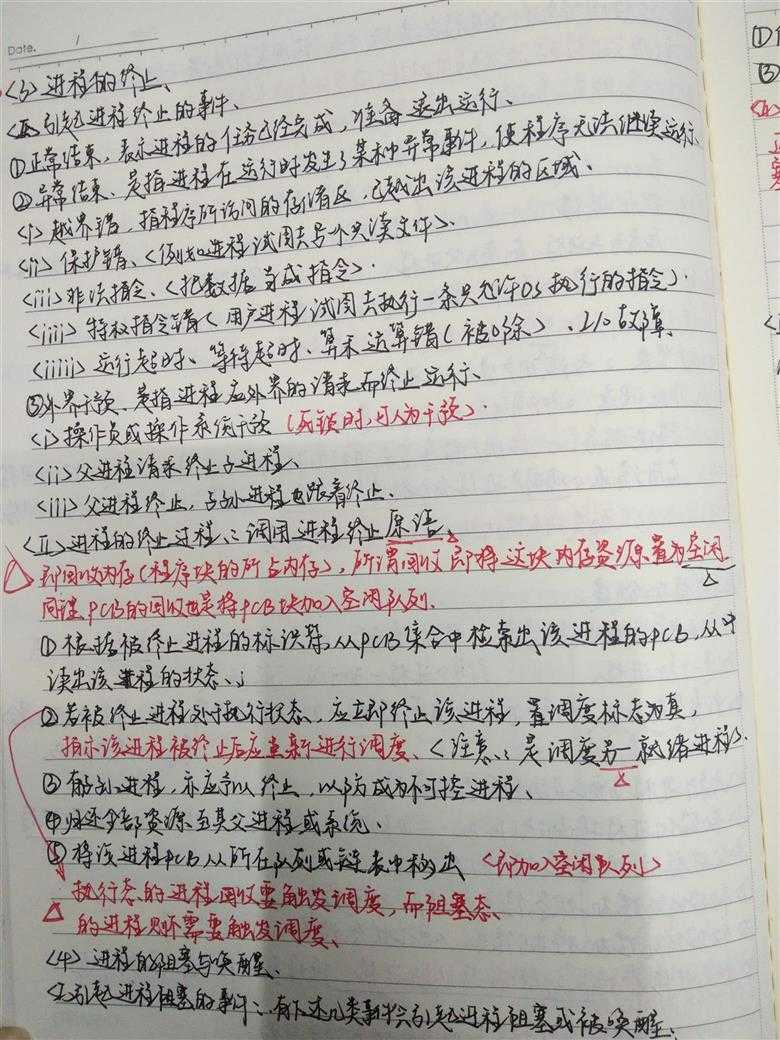 Date. /
<3> 进程的终止、
<I> 引起进程终止的事件、
①正常结束，表示进程的任务已经完成，准备退出运行、
②异常结束、是指进程在运行时发生了某种异常事件，使程序无法继续运行
<i> 越界错，指程序所访问的存储区，已越出该进程的区域、
<ii> 保护错、<例如进程试图去写一个只读文件>、
<iii> 非法指令、<把数据当成指令>.
<iiii> 特权指令错(用户进程试图去执行一条只允许OS执行的指令).
<iiiii> 运行超时、等待超时、算术运算错(被0除)、I/O故障、
③外界干预、是指进程应外界的请求而终止运行、
<i> 操作员或操作系统干预 (死锁时，可人为干预).
<ii> 父进程请求终止子进程、
<iii> 父进程终止，子孙进程也跟着终止、
<II> 进程的终止过程、：调用进程终止原语、
即回收内存(程序块的所占内存)，所谓回收即将这块内存资源置为空闲
同理、PCB的回收也是将PCB块加入空闲队列、
①根据被终止进程的标识符，从PCB集合中检索出该进程的PCB，从中
读出该进程的状态、；
②若被终止进程处于执行状态、应立即终止该进程，置调度标志为真，
指示该进程被终止后应重新进行调度、<注意、：是调度另一就绪进程>、
③有子孙进程，亦应予以终止，以防成为不可控进程、
④归还全部资源至其父进程或系统、
⑤将该进程PCB从所在队列或链表中移出 <即加入空闲队列>
执行态的进程回收要触发调度，而阻塞态、
的进程则不需要触发调度、
<4> 进程的阻塞与唤醒、
<I> 引起进程阻塞的事件、：有下述几类事件会引起进程阻塞或被唤醒、
①
③